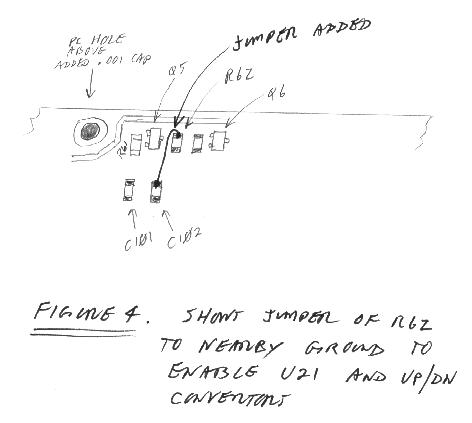 PC HOLE
ABOVE
ADDED .001 CAP
Q5
JUMPER ADDED
R62
Q6
C101
C102
FIGURE 4. SHORT JUMPER OF R62
TO NEARBY GROUND TO
ENABLE U21 AND UP/DN
CONVERTORS